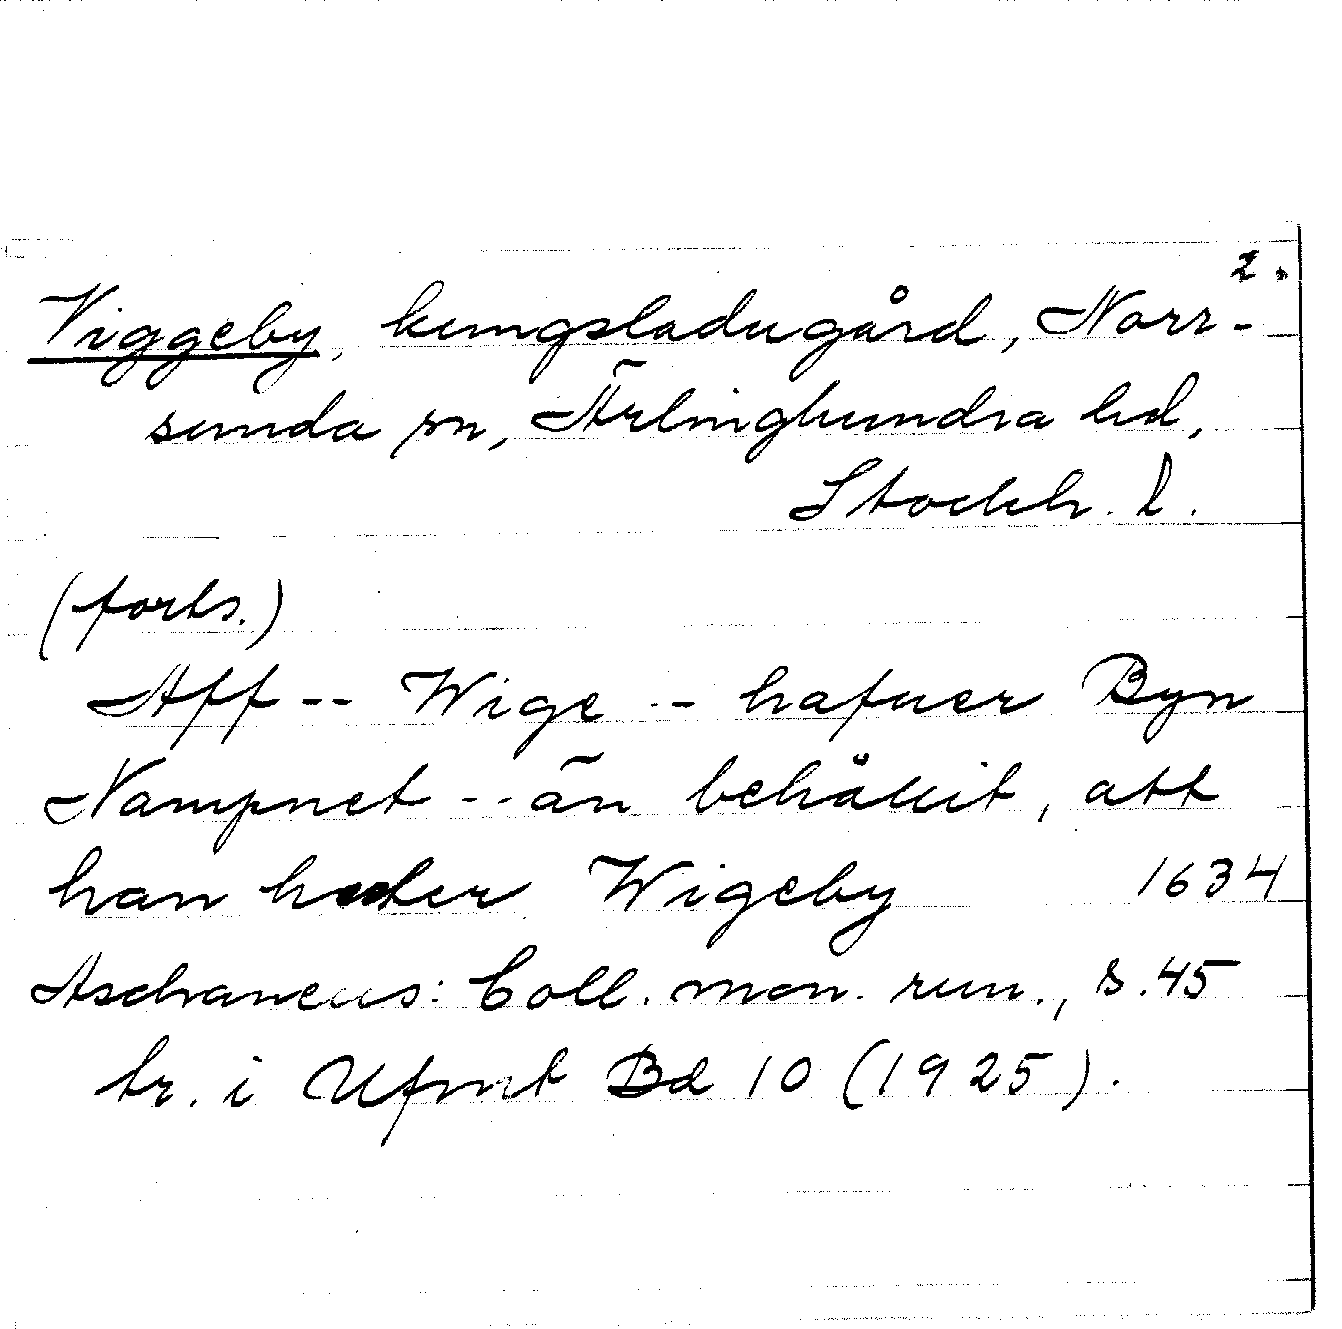 2.
Viggeby, kungsladugård, Norr-
sunda sn, Ärlinghundra hd,
Stockh. l.
(forts.)
Aff -- Wige -- hafuer Byn
Nampnet -- än behållit, att
han heter Wigeby 1634
Aschaneus: Coll. mon. run., s. 45
tr. i Ufmt Bd 10 (1925).